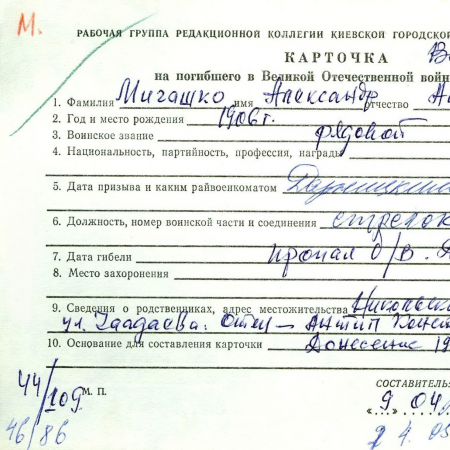 М.
РАБОЧАЯ ГРУППА РЕДАКЦИОННОЙ КОЛЛЕГИИ КИЕВСКОЙ ГОРОДСКОЙ
КАРТОЧКА
на погибшего в Великой Отечественной войн
1. Фамилия Мигашко имя Александр отчество Ан
2. Год и место рождения 1906 г.
3. Воинское звание рядовой
4. Национальность, партийность, профессия, награды
5. Дата призыва и каким райвоенкоматом
6. Должность, номер воинской части и соединения стрелок
7. Дата гибели пропал б/в.
8. Место захоронения
9. Сведения о родственниках, адрес местожительства
ул. Чаадаева. Отец — Антип
10. Основание для составления карточки Донесение 19
44/109
М. П.
СОСТАВИТЕЛЬ:
"..." 9 04
46/86
24.05